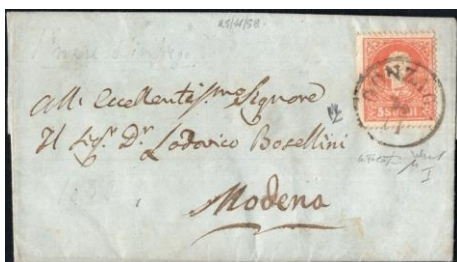 25/11/58
GONZAGA
5 SOLDI
All' Eccellentissme Signore
Il Sigr. Dr. Lodovico Bosellini
Modena
I